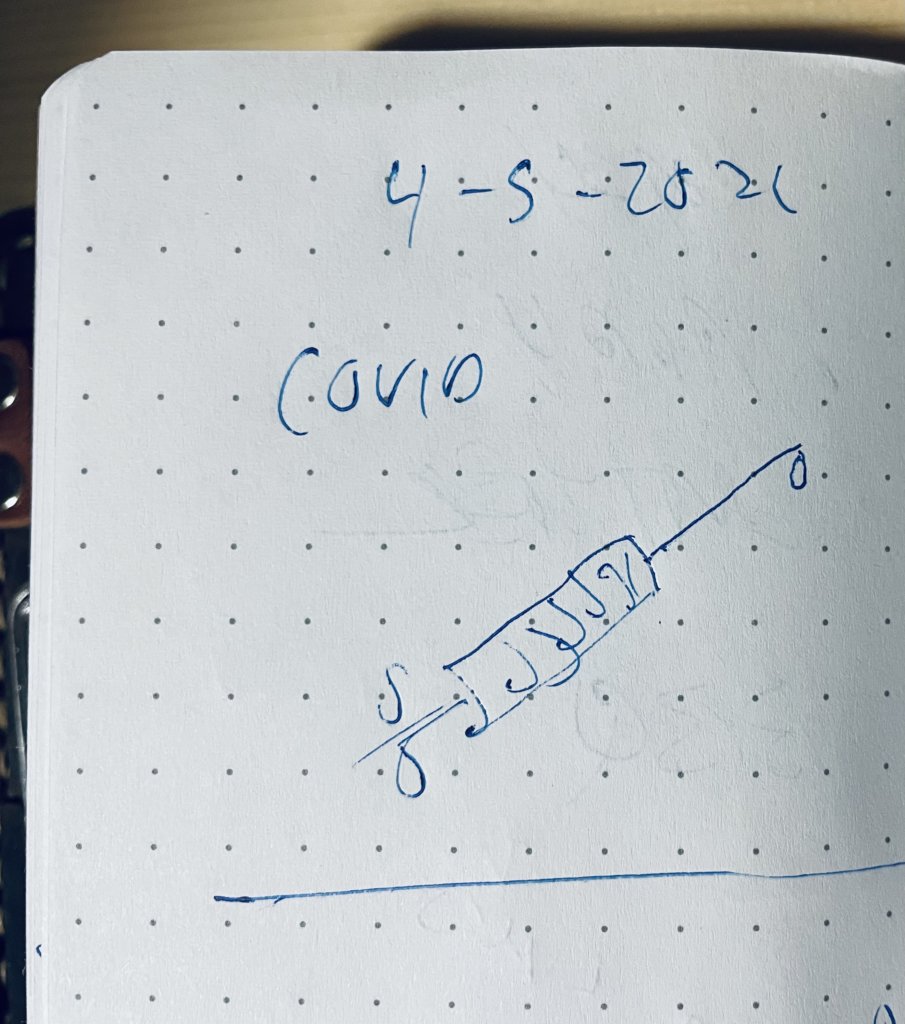 4-5-2021
COVID